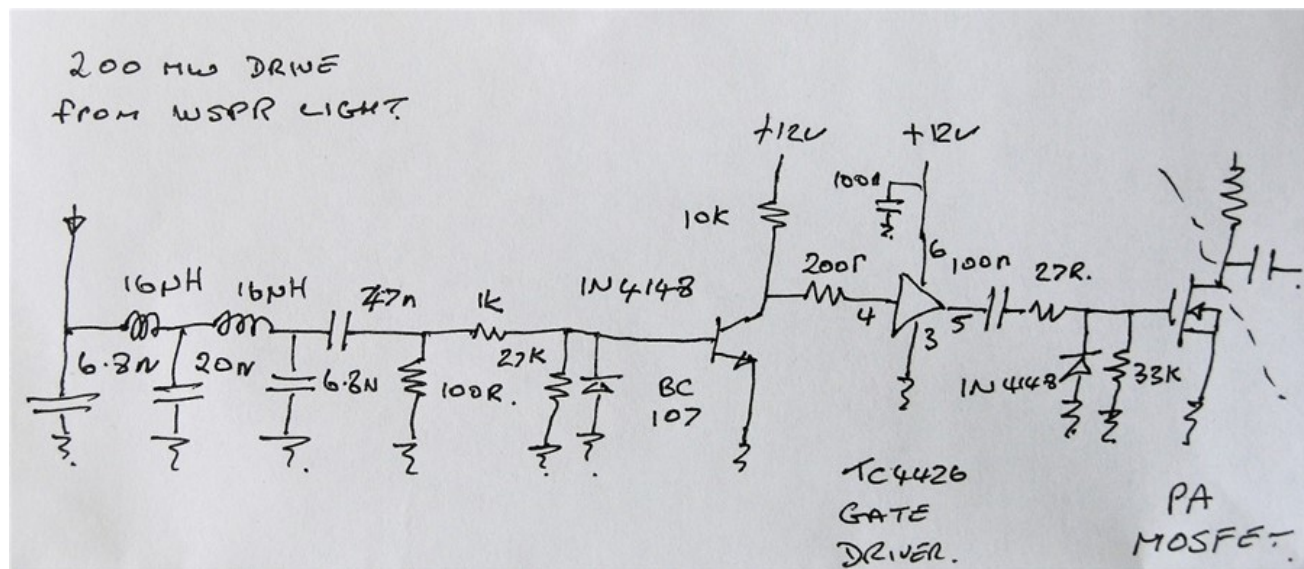 200 MW DRIVE
FROM WSPR LIGHT.
+12V
+12V
100n
10K
6
100n
16µH
16µH
47n
1K
1N4148
200r
27R.
4
5
3
6.8N
20N
6.8N
100R.
27K
BC
107
1N4148
33K
TC4426
GATE
DRIVER.
PA
MOSFET.